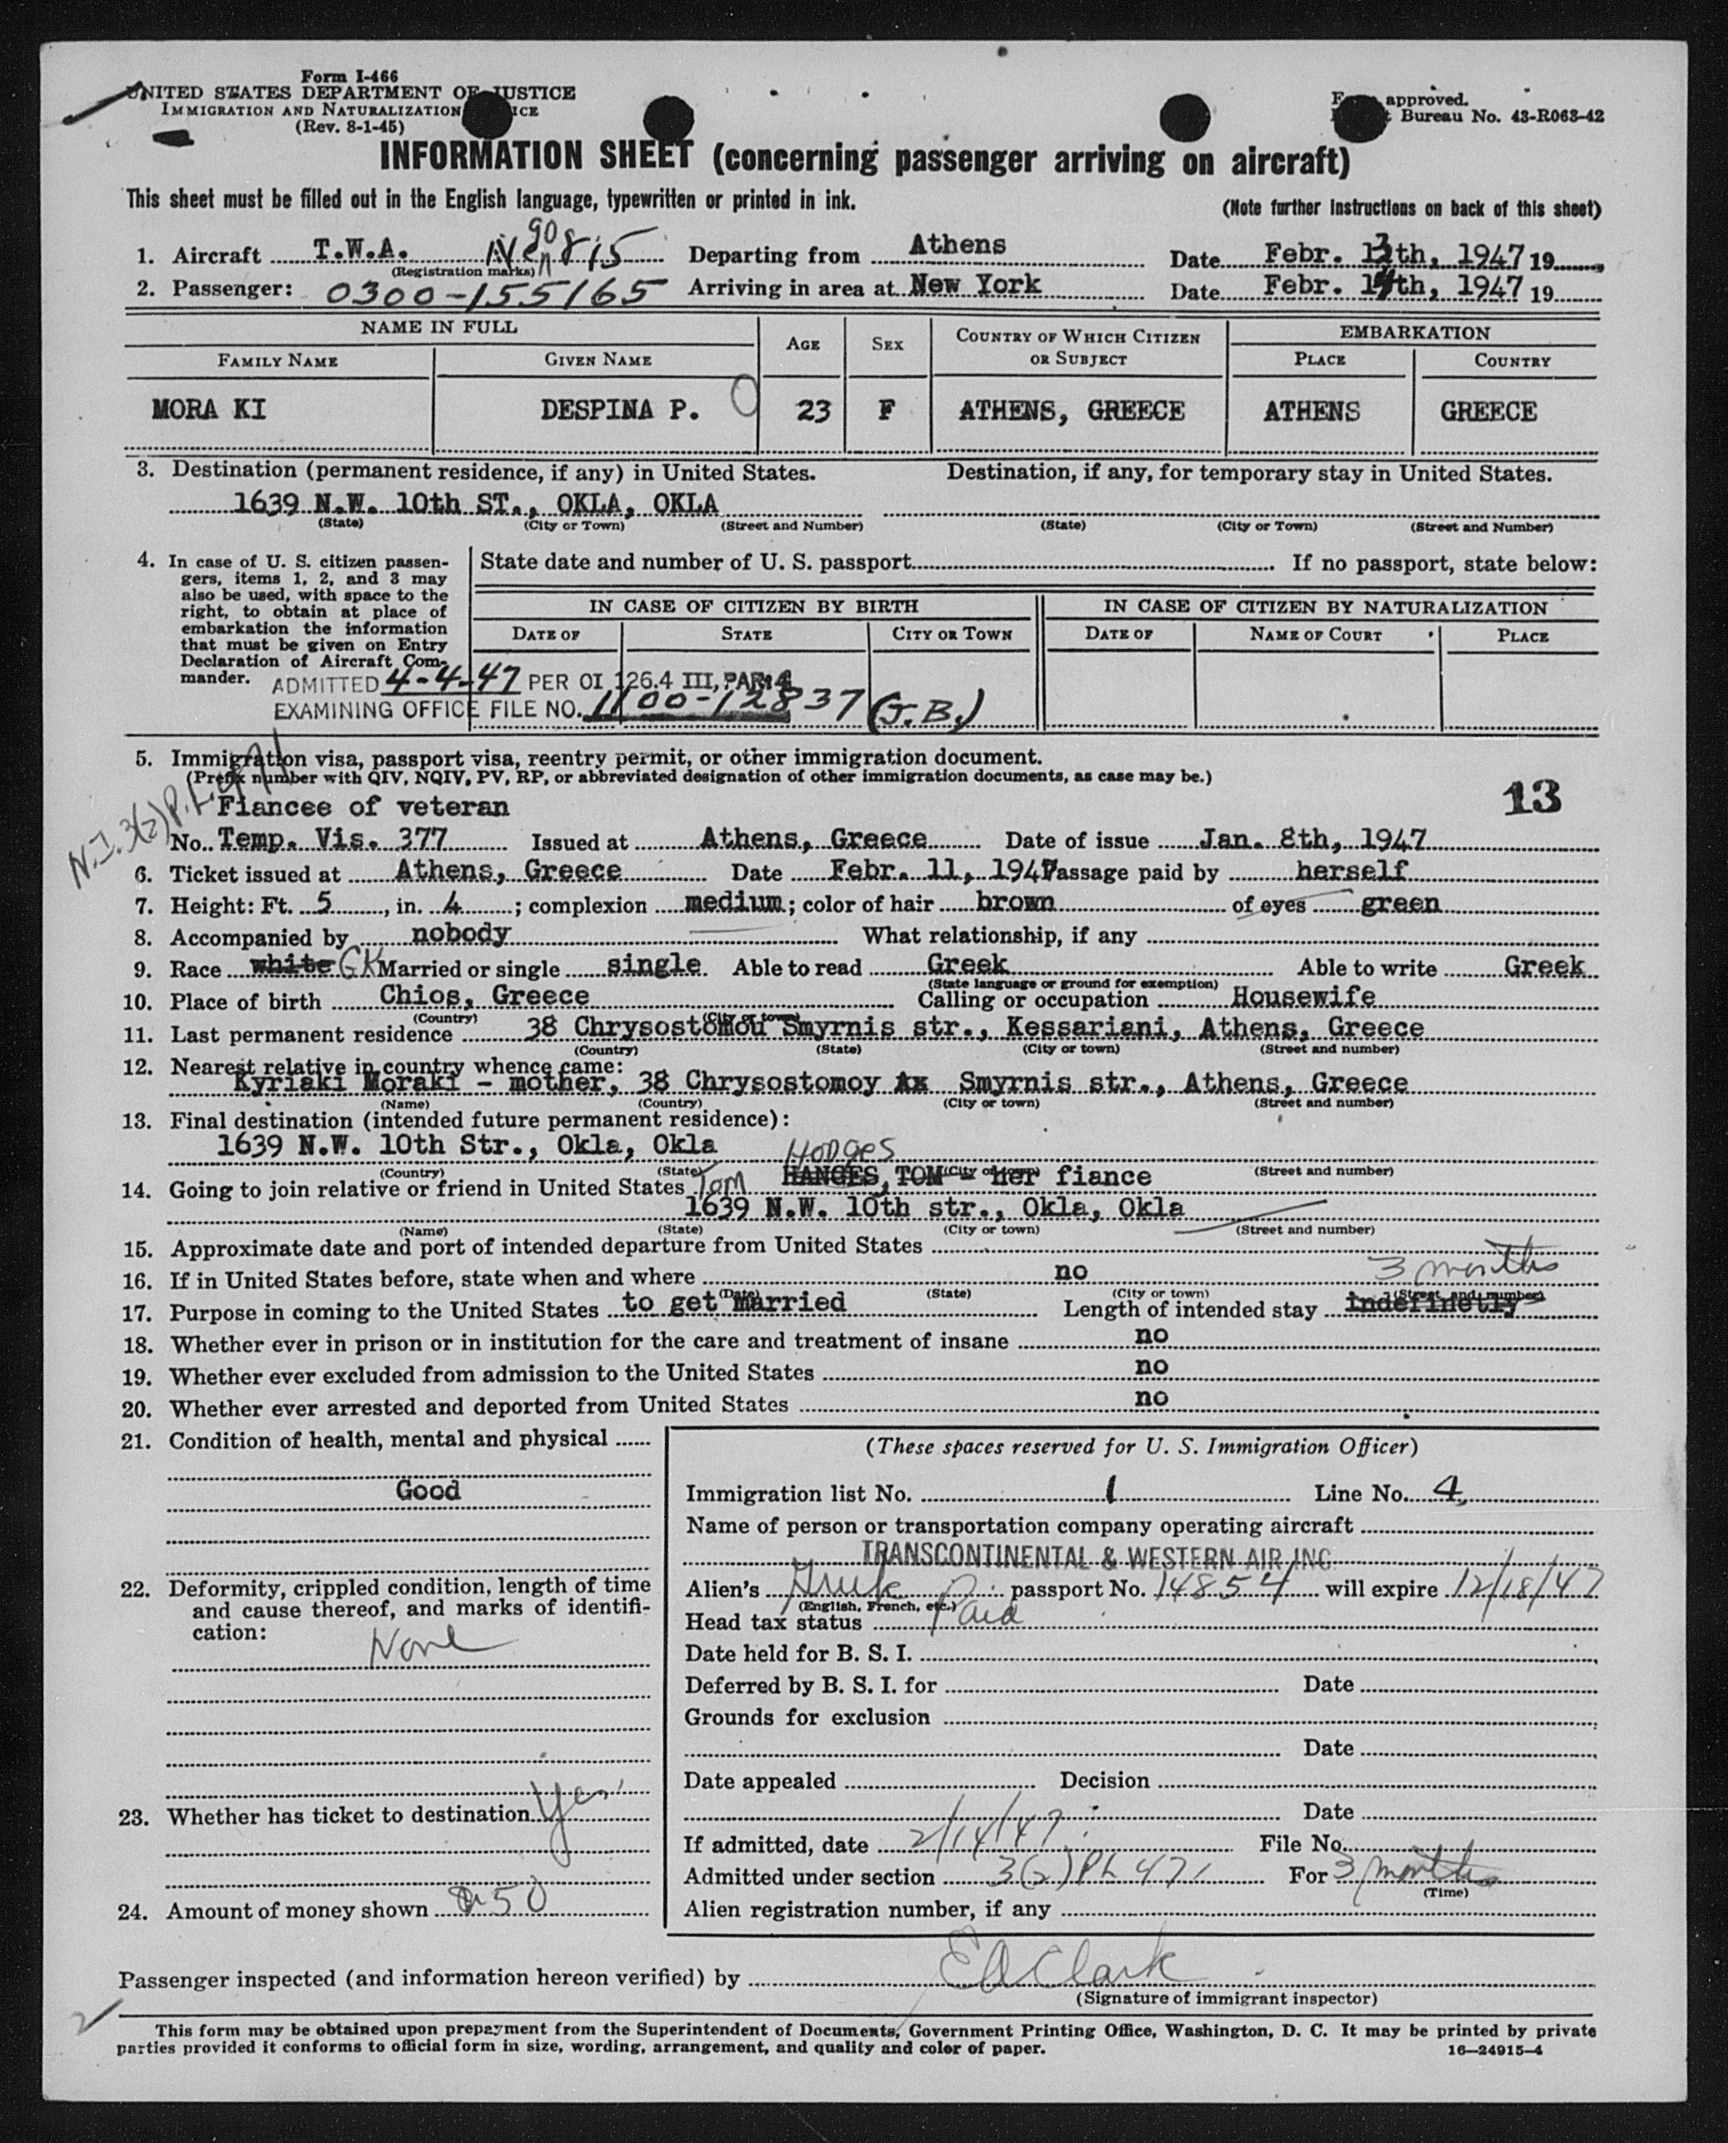 Form I-466
UNITED STATES DEPARTMENT OF JUSTICE
IMMIGRATION AND NATURALIZATION
(Rev. 8-1-45)
approved.
Bureau No. 43-R063-42
INFORMATION SHEET (concerning passenger arriving on aircraft)
This sheet must be filled out in the English language, typewritten or printed in ink.
(Note further instructions on back of this sheet)
1. Aircraft T.W.A. Departing from Athens Date Febr. 13th, 1947 19
(Registration marks)
2. Passenger: 0300-155165 Arriving in area at New York Date Febr. 14th, 1947 19
NAME IN FULL AGE SEX COUNTRY OF WHICH CITIZEN OR SUBJECT EMBARKATION
FAMILY NAME GIVEN NAME PLACE COUNTRY
MORA KI DESPINA P. 23 F ATHENS, GREECE ATHENS GREECE
3. Destination (permanent residence, if any) in United States. Destination, if any, for temporary stay in United States.
1639 N.W. 10th ST., OKLA, OKLA
(State) (City or Town) (Street and Number) (State) (City or Town) (Street and Number)
4. In case of U. S. citizen passen-
gers, items 1, 2, and 3 may
also be used, with space to the
right, to obtain at place of
embarkation the information
that must be given on Entry
Declaration of Aircraft Com-
mander.
State date and number of U. S. passport If no passport, state below:
IN CASE OF CITIZEN BY BIRTH IN CASE OF CITIZEN BY NATURALIZATION
DATE OF STATE CITY OR TOWN DATE OF NAME OF COURT PLACE
ADMITTED 4-4-47 PER OI 126.4 III, PAR. 4
EXAMINING OFFICE FILE NO. 1100-12837 (J.B.)
5. Immigration visa, passport visa, reentry permit, or other immigration document.
(Prefix number with QIV, NQIV, PV, RP, or abbreviated designation of other immigration documents, as case may be.)
13
Fiancee of veteran
N.I. 3(2) P.L. 471
No. Temp. Vis. 377 Issued at Athens, Greece Date of issue Jan. 8th, 1947
6. Ticket issued at Athens, Greece Date Febr. 11, 1947 Passage paid by herself
7. Height: Ft. 5, in. 4; complexion medium; color of hair brown of eyes green
8. Accompanied by nobody What relationship, if any
9. Race white GK Married or single single Able to read Greek Able to write Greek
(State language or ground for exemption)
10. Place of birth Chios, Greece Calling or occupation Housewife
(Country) (City or town)
11. Last permanent residence 38 Chrysostomou Smyrnis str., Kessariani, Athens, Greece
(Country) (State) (City or town) (Street and number)
12. Nearest relative in country whence came:
Kyriaki Moraki - mother, 38 Chrysostomoy Ax Smyrnis str., Athens, Greece
(Name) (Country) (City or town) (Street and number)
13. Final destination (intended future permanent residence):
1639 N.W. 10th Str., Okla, Okla Hodges
(Country) (State) (City or town) (Street and number)
14. Going to join relative or friend in United States Tom HANGES, TOM - her fiance
1639 N.W. 10th str., Okla, Okla
(Name) (State) (City or town) (Street and number)
15. Approximate date and port of intended departure from United States
16. If in United States before, state when and where no 3 months
(Date) (State) (City or town) (Street and number)
17. Purpose in coming to the United States to get married Length of intended stay indefinetly
18. Whether ever in prison or in institution for the care and treatment of insane no
19. Whether ever excluded from admission to the United States no
20. Whether ever arrested and deported from United States no
21. Condition of health, mental and physical
Good
22. Deformity, crippled condition, length of time
and cause thereof, and marks of identifi-
cation:
None
23. Whether has ticket to destination Yes
24. Amount of money shown 50
(These spaces reserved for U. S. Immigration Officer)
Immigration list No. 1 Line No. 4
Name of person or transportation company operating aircraft
TRANSCONTINENTAL & WESTERN AIR INC
Alien's Greek passport No. 14854 will expire 12/18/47
(English, French, etc.)
Head tax status Paid
Date held for B. S. I.
Deferred by B. S. I. for Date
Grounds for exclusion
Date
Date appealed Decision
Date
If admitted, date 2/14/47 File No.
Admitted under section 3(2) PL 471 For 3 months
(Time)
Alien registration number, if any
Passenger inspected (and information hereon verified) by E A Clark
(Signature of immigrant inspector)
This form may be obtained upon prepayment from the Superintendent of Documents, Government Printing Office, Washington, D. C. It may be printed by private
parties provided it conforms to official form in size, wording, arrangement, and quality and color of paper.
16-24915-4